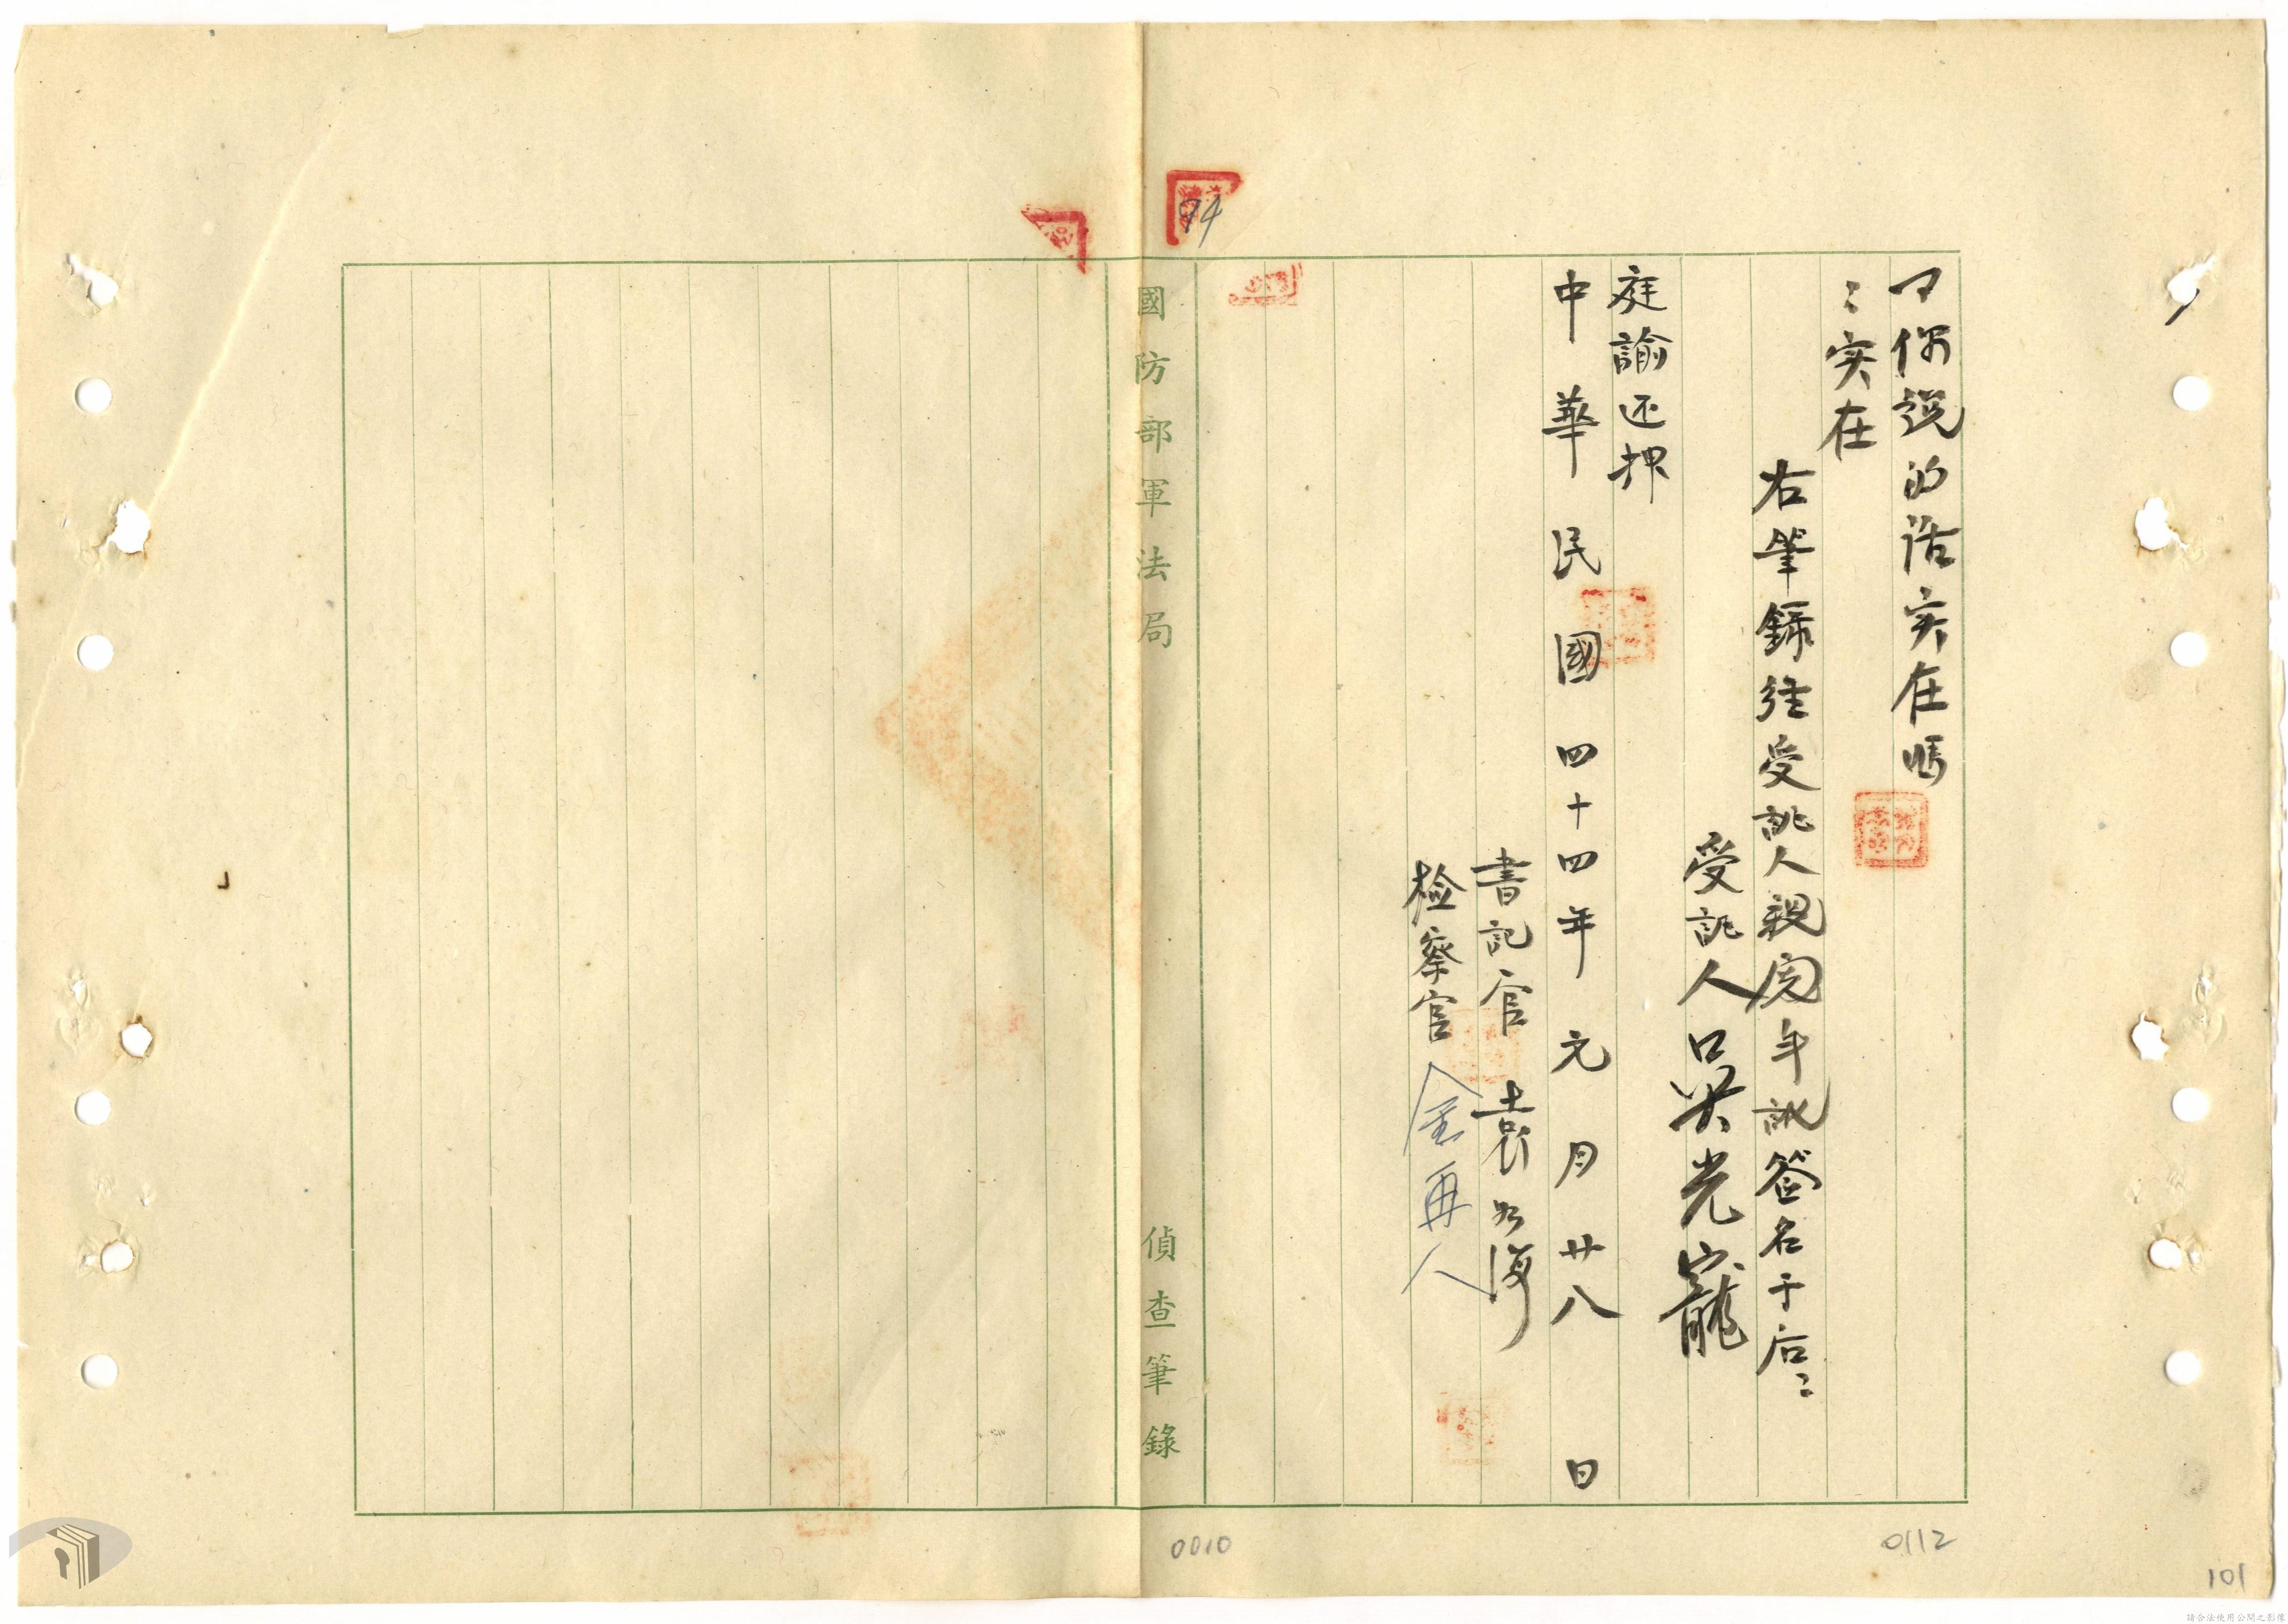 你說的話实在嗎
〻实在
右筆錄經受訊人親閱年訊签名于后〻
受訊人吳光寵
庭諭还押
中華民國四十四年元月廿八日
書記官 袁
检察官 金再人
94
國防部軍法局 偵查筆錄
0010
0112
101
請合法使用公開之影像